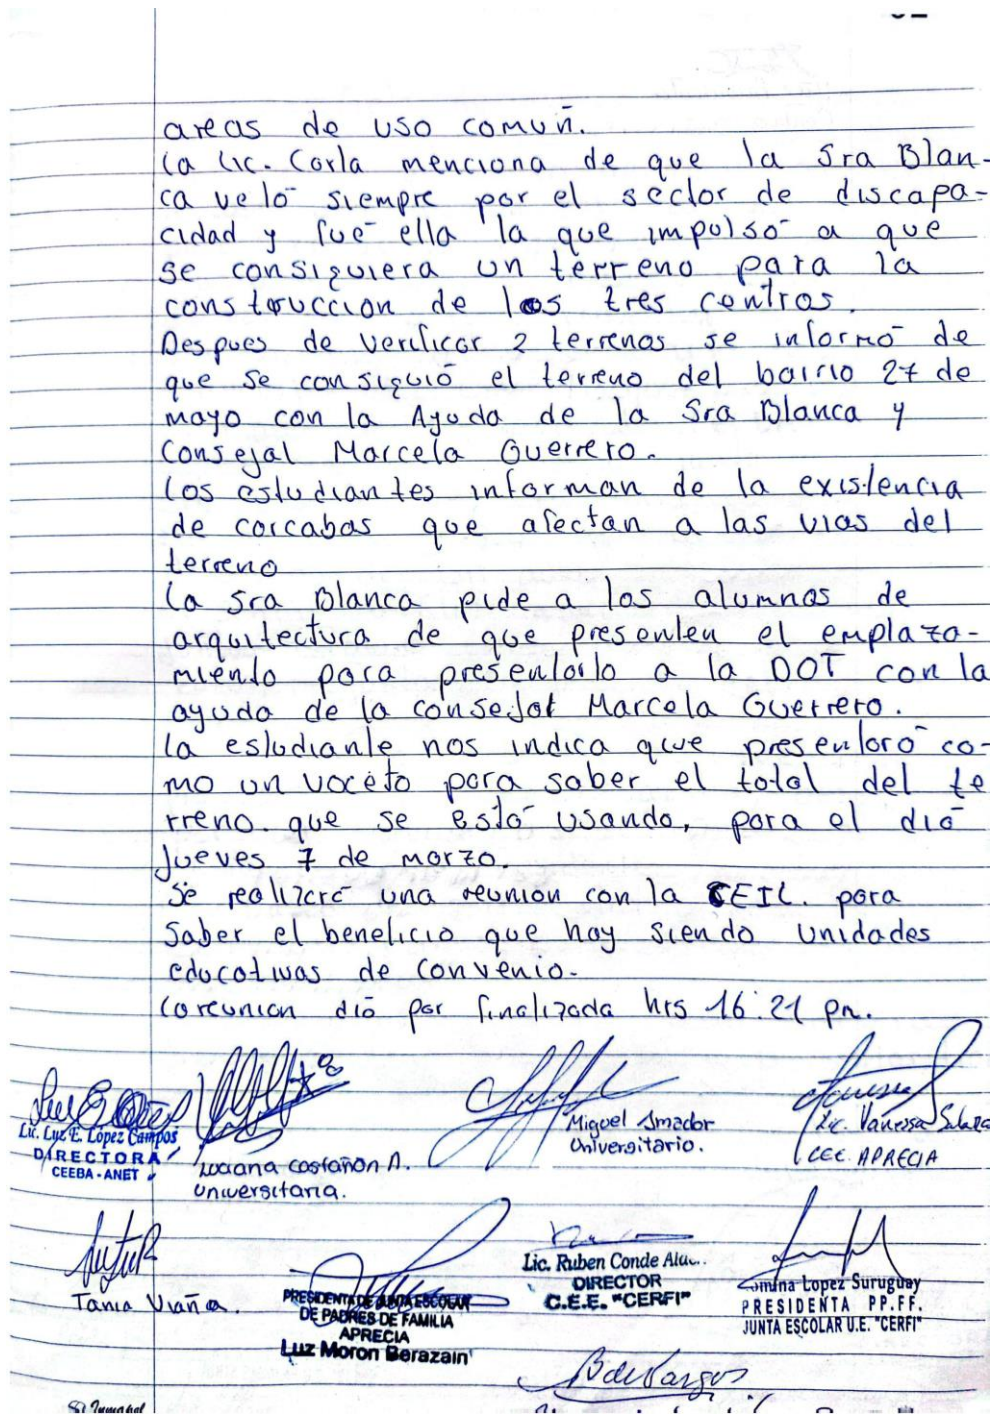 areas de uso comuñ.
La Lic. Carla menciona de que la Sra Blan-
ca veló siempre por el sector de discapa-
cidad y fué ella la que impulsó a que
se consiguiera un terreno para la
construccion de los tres centros.
Despues de verificar 2 terrenos se informó de
que se consiguió el terreno del barrio 27 de
mayo con la Ayuda de la Sra Blanca y
Consejal Marcela Guerrero.
Los estudiantes informan de la existencia
de corcabas que afectan a las vias del
terreno
La Sra Blanca pide a los alumnos de
arquitectura de que presenten el emplaza-
miento para presentarlo a la DOT con la
ayuda de la consejal Marcela Guerrero.
La estudiante nos indica que presentoró co-
mo un voceto para saber el total del te
rreno. que se está usando, para el diá
jueves 7 de marzo.
Se realizaré una reunion con la CEIL. para
Saber el beneficio que hay siendo Unidades
educativas de Convenio.
La reunion dió por finalizada hrs 16:21 pm.
Lic. Luz E. López Campos
DIRECTORA
CEEBA - ANET
Luciana castañon A.
Universitaria.
Miguel Amador
Universitario.
Lic. Vanessa
CEE. APRECIA
Tania Viaña.
PRESIDENTA DE JUNTA ESCOLAR
DE PADRES DE FAMILIA
APRECIA
Luz Moron Berazain
Lic. Ruben Conde
DIRECTOR
C.E.E. "CERFI"
Lopez Suruguay
PRESIDENTA PP.FF.
JUNTA ESCOLAR U.E. "CERFI"
B de Vargas